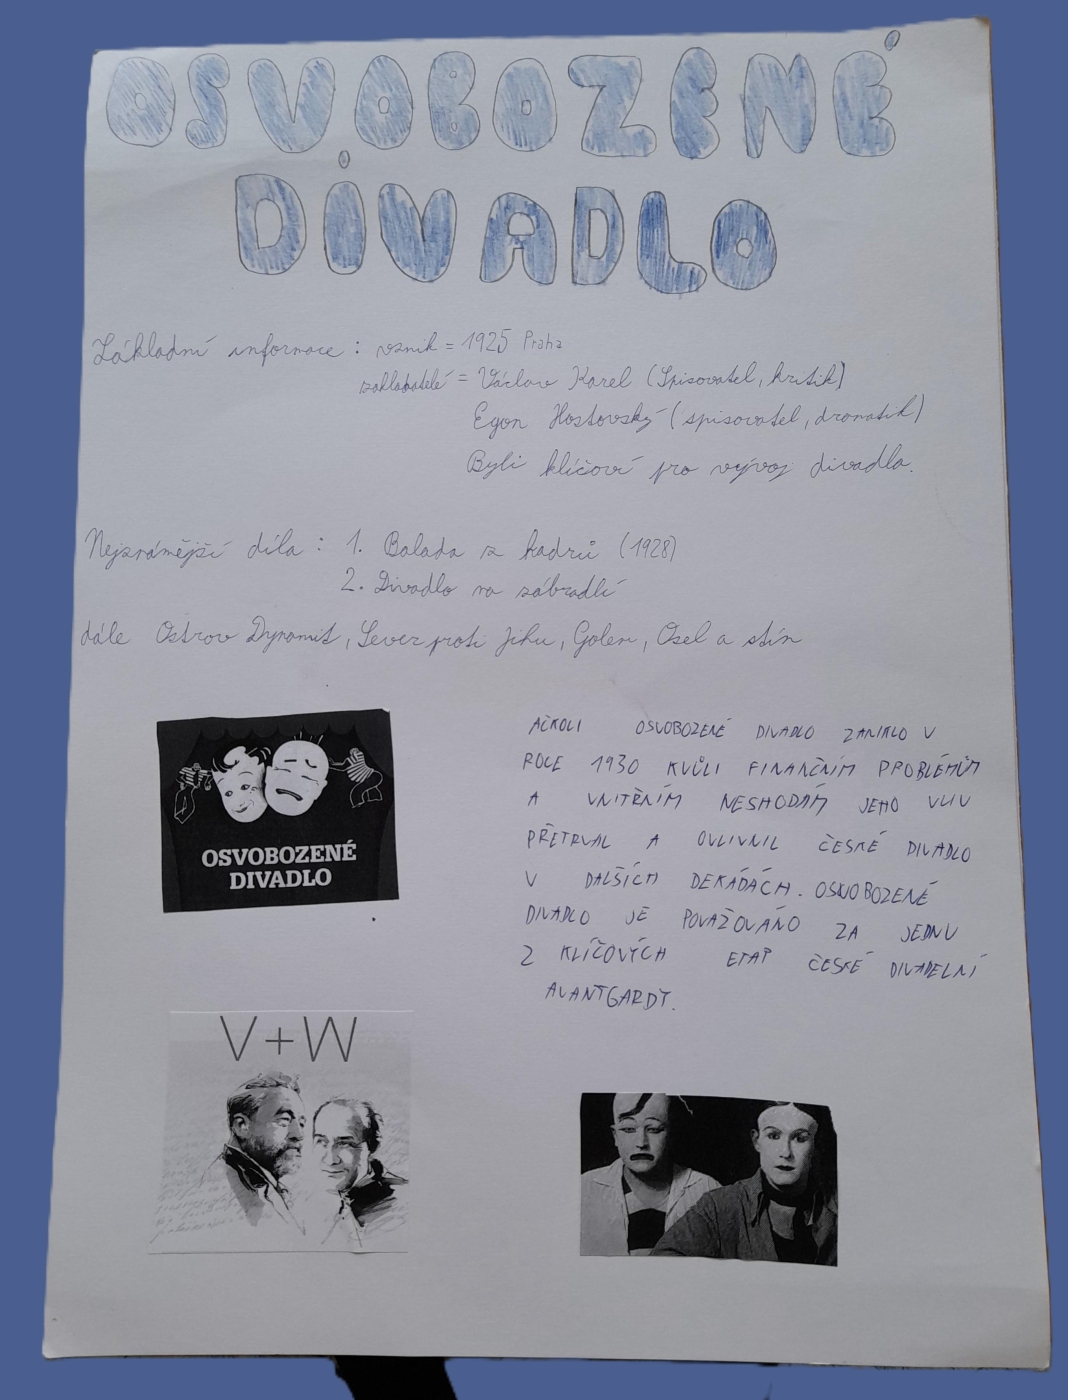 OSVOBOZENÉ
DIVADLO
Základní informace : vznik = 1925 Praha
zakladatelé = Václav Karel (Spisovatel, kritik)
Egon Hostovský (spisovatel, dramatik)
Byli klíčoví pro vývoj divadla.
Nejznámější díla : 1. Balada z hadrů (1928)
2. Divadlo na zábradlí
dále Ostrov Dynamit, Sever proti Jihu, Golem, Osel a stín
AČKOLI OSVOBOZENÉ DIVADLO ZANIKLO V
ROCE 1930 KVŮLI FINANČNÍM PROBLÉMŮM
A VNITŘNÍM NESHODÁM JEHO VLIV
PŘETRVAL A OVLIVNIL ČESKÉ DIVADLO
V DALŠÍCH DEKÁDÁCH. OSVOBOZENÉ
DIVADLO JE POVAŽOVÁNO ZA JEDNU
Z KLÍČOVÝCH ETAP ČESKÉ DIVADELNÍ
AVANTGARDY.
OSVOBOZENÉ
DIVADLO
V+W